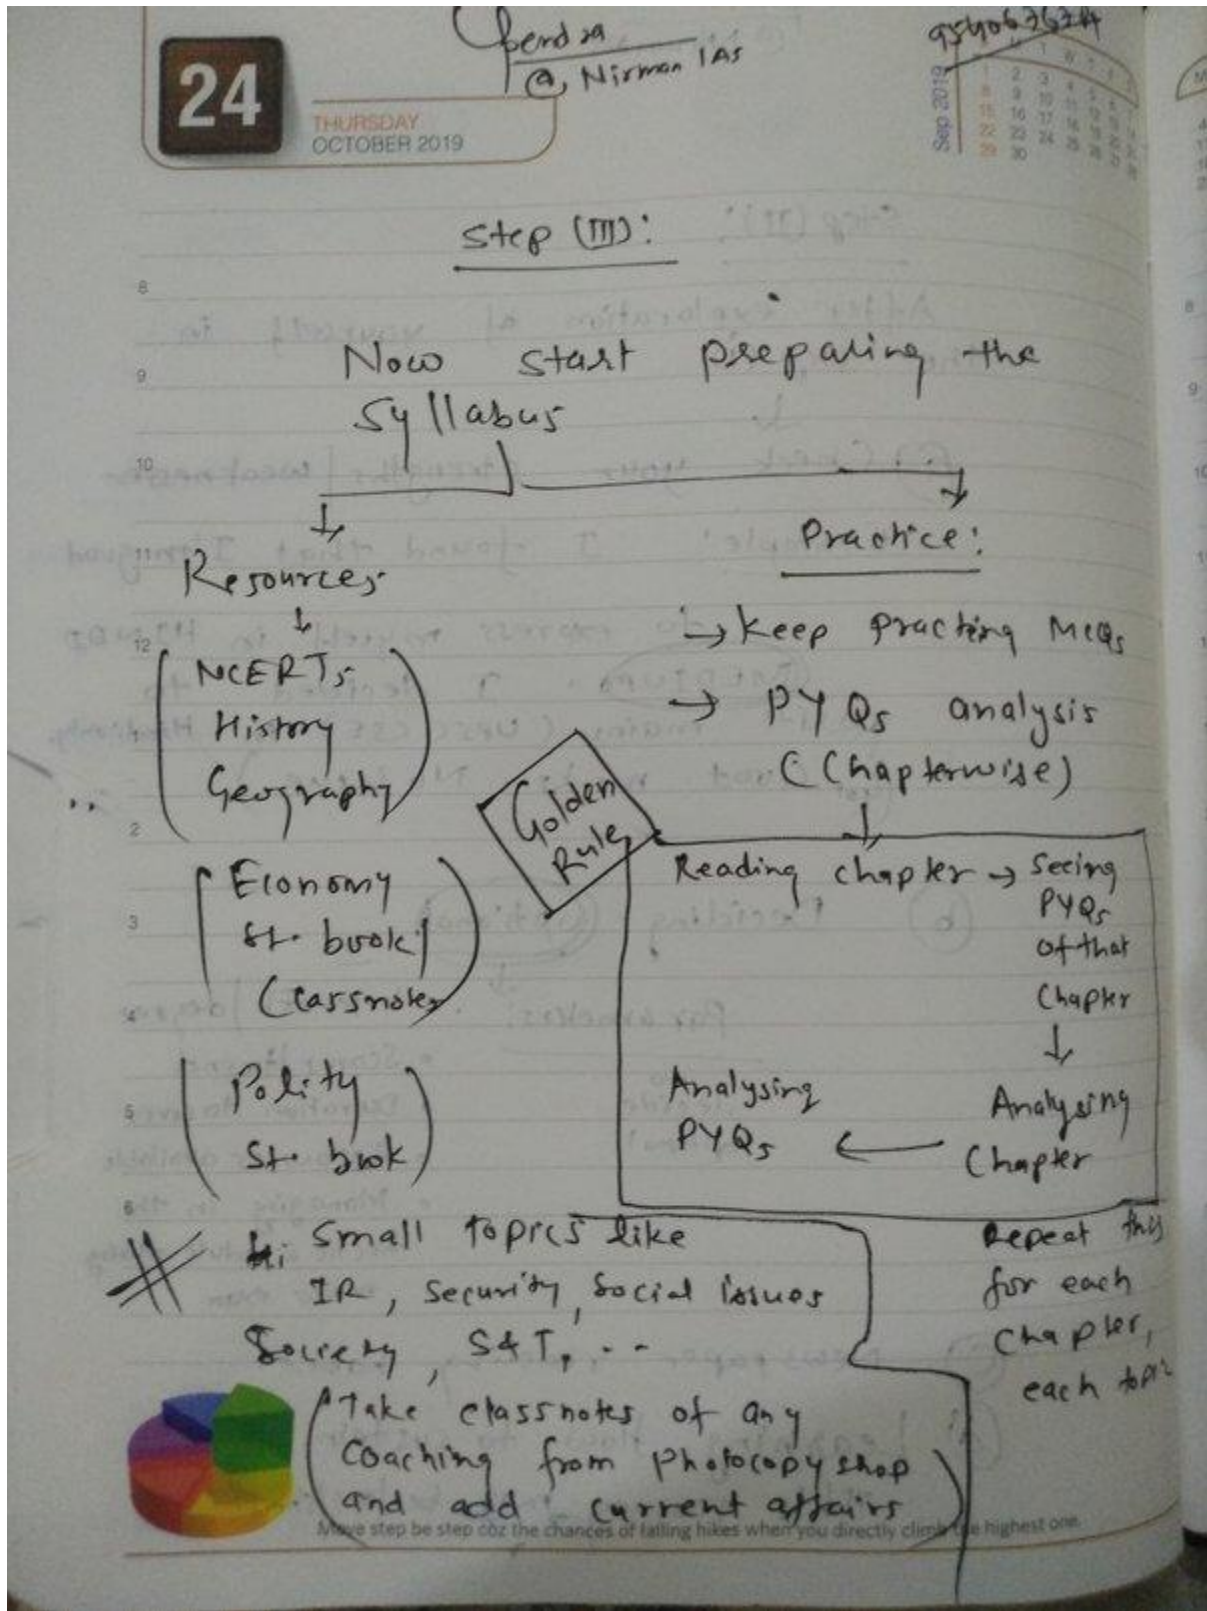 @ Nirman IAS
24
THURSDAY
OCTOBER 2019
Sep 2019
Step (III):
Now start preparing the
syllabus
Resources
NCERTs
History
Geography
Economy
St. book
Classnotes
Polity
St. book
Practice:
→ Keep practing MCQs
→ PYQs analysis
(Chapterwise)
Golden
Rule
Reading chapter → Seeing
PYQs
of that
Chapter
Analysing
Chapter
Analysing
PYQs
Repeat this
for each
Chapter,
each topic
Small topics like
IR, security, social issues
Society, S&T, ..
(Take classnotes of any
coaching from photocopy shop
and add current affairs)
Move step be step coz the chances of falling hikes when you directly climb the highest one.
8
9
10
11
12
1
2
3
4
5
6